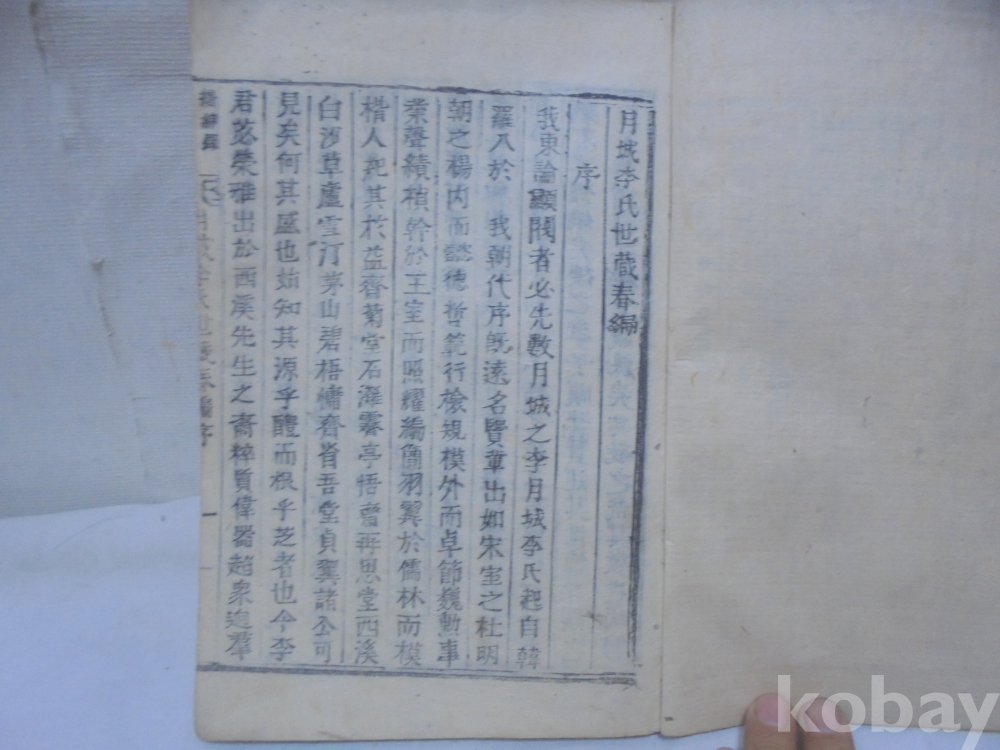 月城李氏世蔵春編
序
我東論顯閥者必先數月城之李月城李氏起自韓
羅入於 我朝代序旣遠名賢輩出如宋室之杜明
朝之楊內而懿德哲範行檢規模外而卓節巍勳事
業聲績楨幹於王室而照耀編簡羽翼於儒林而模
楷人死其於益齋菊堂石灘霽亭悟齋再思堂西溪
白沙草廬雪汀茅山碧梧慵齋省吾堂貞翼諸公可
見矣何其盛也始知其源乎醴而根乎芝者也今李
君苾榮雅出於西溪先生之裔粹質偉器超衆逈羣
一
kobay